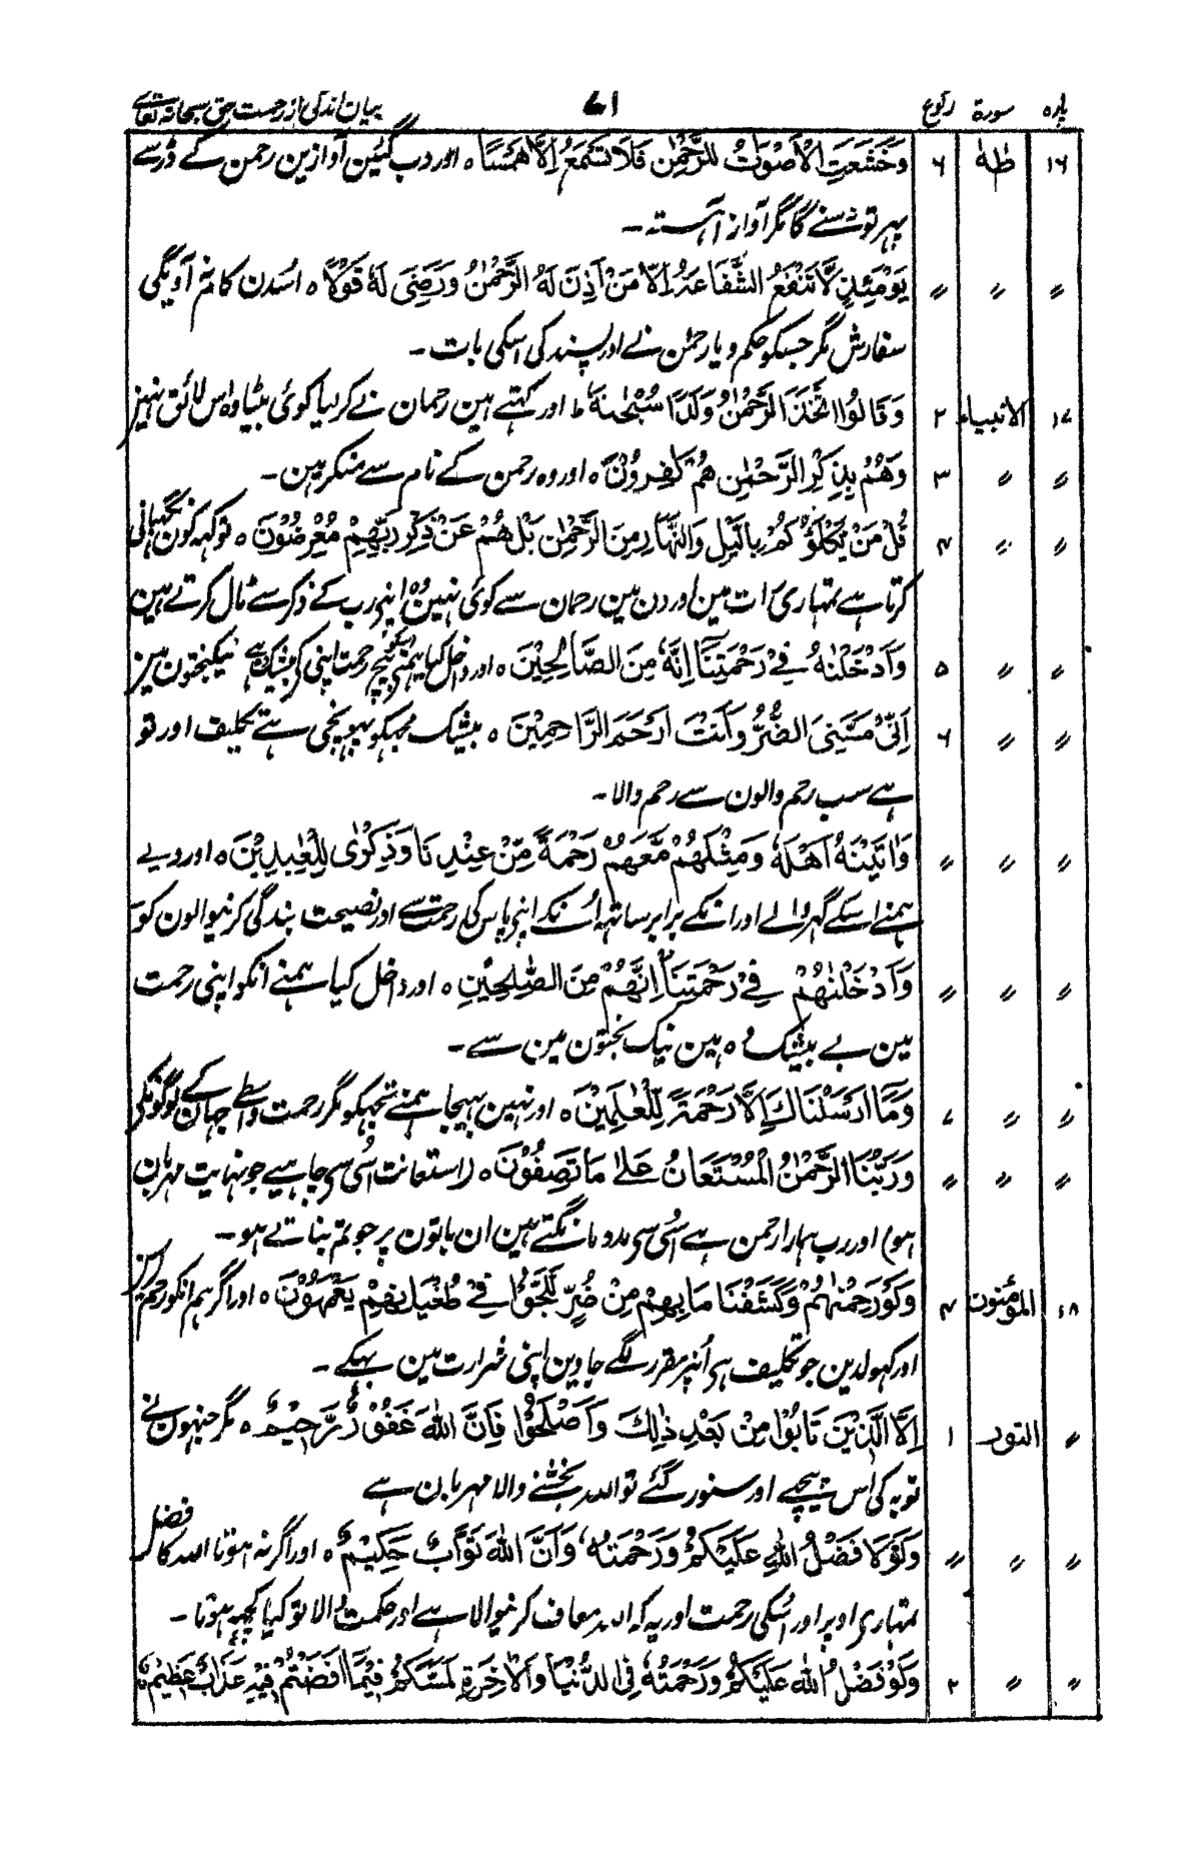 پارہ سورۃ رکوع ۷۱ بیان اندکی از رحمت حق سبحانہ تعالےٰ
۱۶ طٰہٰ ۶ وَخَشَعَتِ الْاَصْوَاتُ لِلرَّحْمٰنِ فَلَا تَسْمَعُ اِلَّا هَمْسًا ہ اور دب گئین آوازین رحمن کے ڈر سے
پہر تو نہ سنے گا مگر آواز آہستہ ۔
〃 〃 〃 يَوْمَئِذٍ لَّا تَنْفَعُ الشَّفَاعَةُ اِلَّا مَنْ اَذِنَ لَهُ الرَّحْمٰنُ وَرَضِىَ لَهٗ قَوْلًا ہ اسدن کام نہ آویگی
سفارش مگر جسکو حکم دیا رحمٰن نے اور پسند کی اسکی بات ۔
۱۷ الانبیاء ۲ وَقَالُوا اتَّخَذَ الرَّحْمٰنُ وَلَدًا سُبْحٰنَهٗ ط اور کہتے ہین رحمان نے کر لیا کوئی بیٹا وہ اس لائق نہین
〃 〃 ۳ وَهُمْ بِذِكْرِ الرَّحْمٰنِ هُمْ كٰفِرُوْنَ ہ اور وہ رحمن کے نام سے منکر ہین ۔
〃 〃 ۴ قُلْ مَنْ يَّكْلَؤُكُمْ بِالَّيْلِ وَالنَّهَارِ مِنَ الرَّحْمٰنِ بَلْ هُمْ عَنْ ذِكْرِ رَبِّهِمْ مُعْرِضُوْنَ ہ تو کہہ کون نگہبانی
کرتا ہے تمہاری رات مین اور دن مین رحمان سے کوئی نہین وہ اپنے رب کے ذکر سے ٹال کرتے ہین
〃 〃 ۵ وَاَدْخَلْنٰهُ فِيْ رَحْمَتِنَا اِنَّهٗ مِنَ الصَّالِحِيْنَ ہ اور داخل کیا ہمنے اسکو بیچ رحمت اپنی کے بیشک وہ ہے نیکبختون مین
〃 〃 ۶ اَنِّىْ مَسَّنِىَ الضُّرُّ وَاَنْتَ اَرْحَمُ الرَّاحِمِيْنَ ہ بیشک مجہکو پہونچی ہے تکلیف اور تو
ہے سب رحم والون سے رحم والا ۔
〃 〃 〃 وَاٰتَيْنٰهُ اَهْلَهٗ وَمِثْلَهُمْ مَّعَهُمْ رَحْمَةً مِّنْ عِنْدِنَا وَذِكْرٰى لِلْعٰبِدِيْنَ ہ اور دیے
ہمنے اسکے گہر والے اور انکے برابر ساتھہ انکے اپنے پاس کی رحمت سے اور نصیحت بندگی کرنیوالون کو
〃 〃 〃 وَاَدْخَلْنٰهُمْ فِيْ رَحْمَتِنَا اِنَّهُمْ مِّنَ الصّٰلِحِيْنَ ہ اور داخل کیا ہمنے انکو اپنی رحمت
مین بے بیشک وہ ہین نیک بختون مین سے ۔
〃 〃 ۷ وَمَا اَرْسَلْنَاكَ اِلَّا رَحْمَةً لِّلْعٰلَمِيْنَ ہ اور نہین بہیجا ہمنے تجہکو مگر رحمت واسطے جہان کے لوگونکی
〃 〃 〃 وَرَبُّنَا الرَّحْمٰنُ الْمُسْتَعَانُ عَلٰى مَا تَصِفُوْنَ ہ (استعانت اُسی سے چاہیے جو نہایت مہربان
ہو) اور رب ہمارا رحمن ہے اُسی سے مدد مانگتے ہین ان باتون پر جو تم بناتے ہو ۔
۱۸ المؤمنون ۴ وَلَوْ رَحِمْنٰهُمْ وَكَشَفْنَا مَا بِهِمْ مِنْ ضُرٍّ لَّلَجُّوْا فِيْ طُغْيَانِهِمْ يَعْمَهُوْنَ ہ اور اگر ہم انکو رحم کرین
اور کہولدین جو تکلیف ہے اُنپر مقرر لگے جاوین اپنی شرارت مین بہکے ۔
〃 النور ۱ اِلَّا الَّذِيْنَ تَابُوْا مِنْ بَعْدِ ذٰلِكَ وَاَصْلَحُوْا فَاِنَّ اللّٰهَ غَفُوْرٌ رَّحِيْمٌ ہ مگر جنہون نے
توبہ کی اس پیچہے اور سنور گئے تو اللہ بخشنے والا مہربان ہے
〃 〃 〃 وَلَوْلَا فَضْلُ اللّٰهِ عَلَيْكُمْ وَرَحْمَتُهٗ وَاَنَّ اللّٰهَ تَوَّابٌ حَكِيْمٌ ہ اور اگر نہ ہوتا اللہ کا فضل
تمہارے اوپر اور اسکی رحمت اور یہ کہ اللہ معاف کرنیوالا ہے اور حکمت والا تو کیا کچہہ ہوتا ۔
〃 〃 ۲ وَلَوْ فَضْلُ اللّٰهِ عَلَيْكُمْ وَرَحْمَتُهٗ فِى الدُّنْيَا وَالْاٰخِرَةِ لَمَسَّكُمْ فِيْمَا اَفَضْتُمْ فِيْهِ عَذَابٌ عَظِيْمٌ